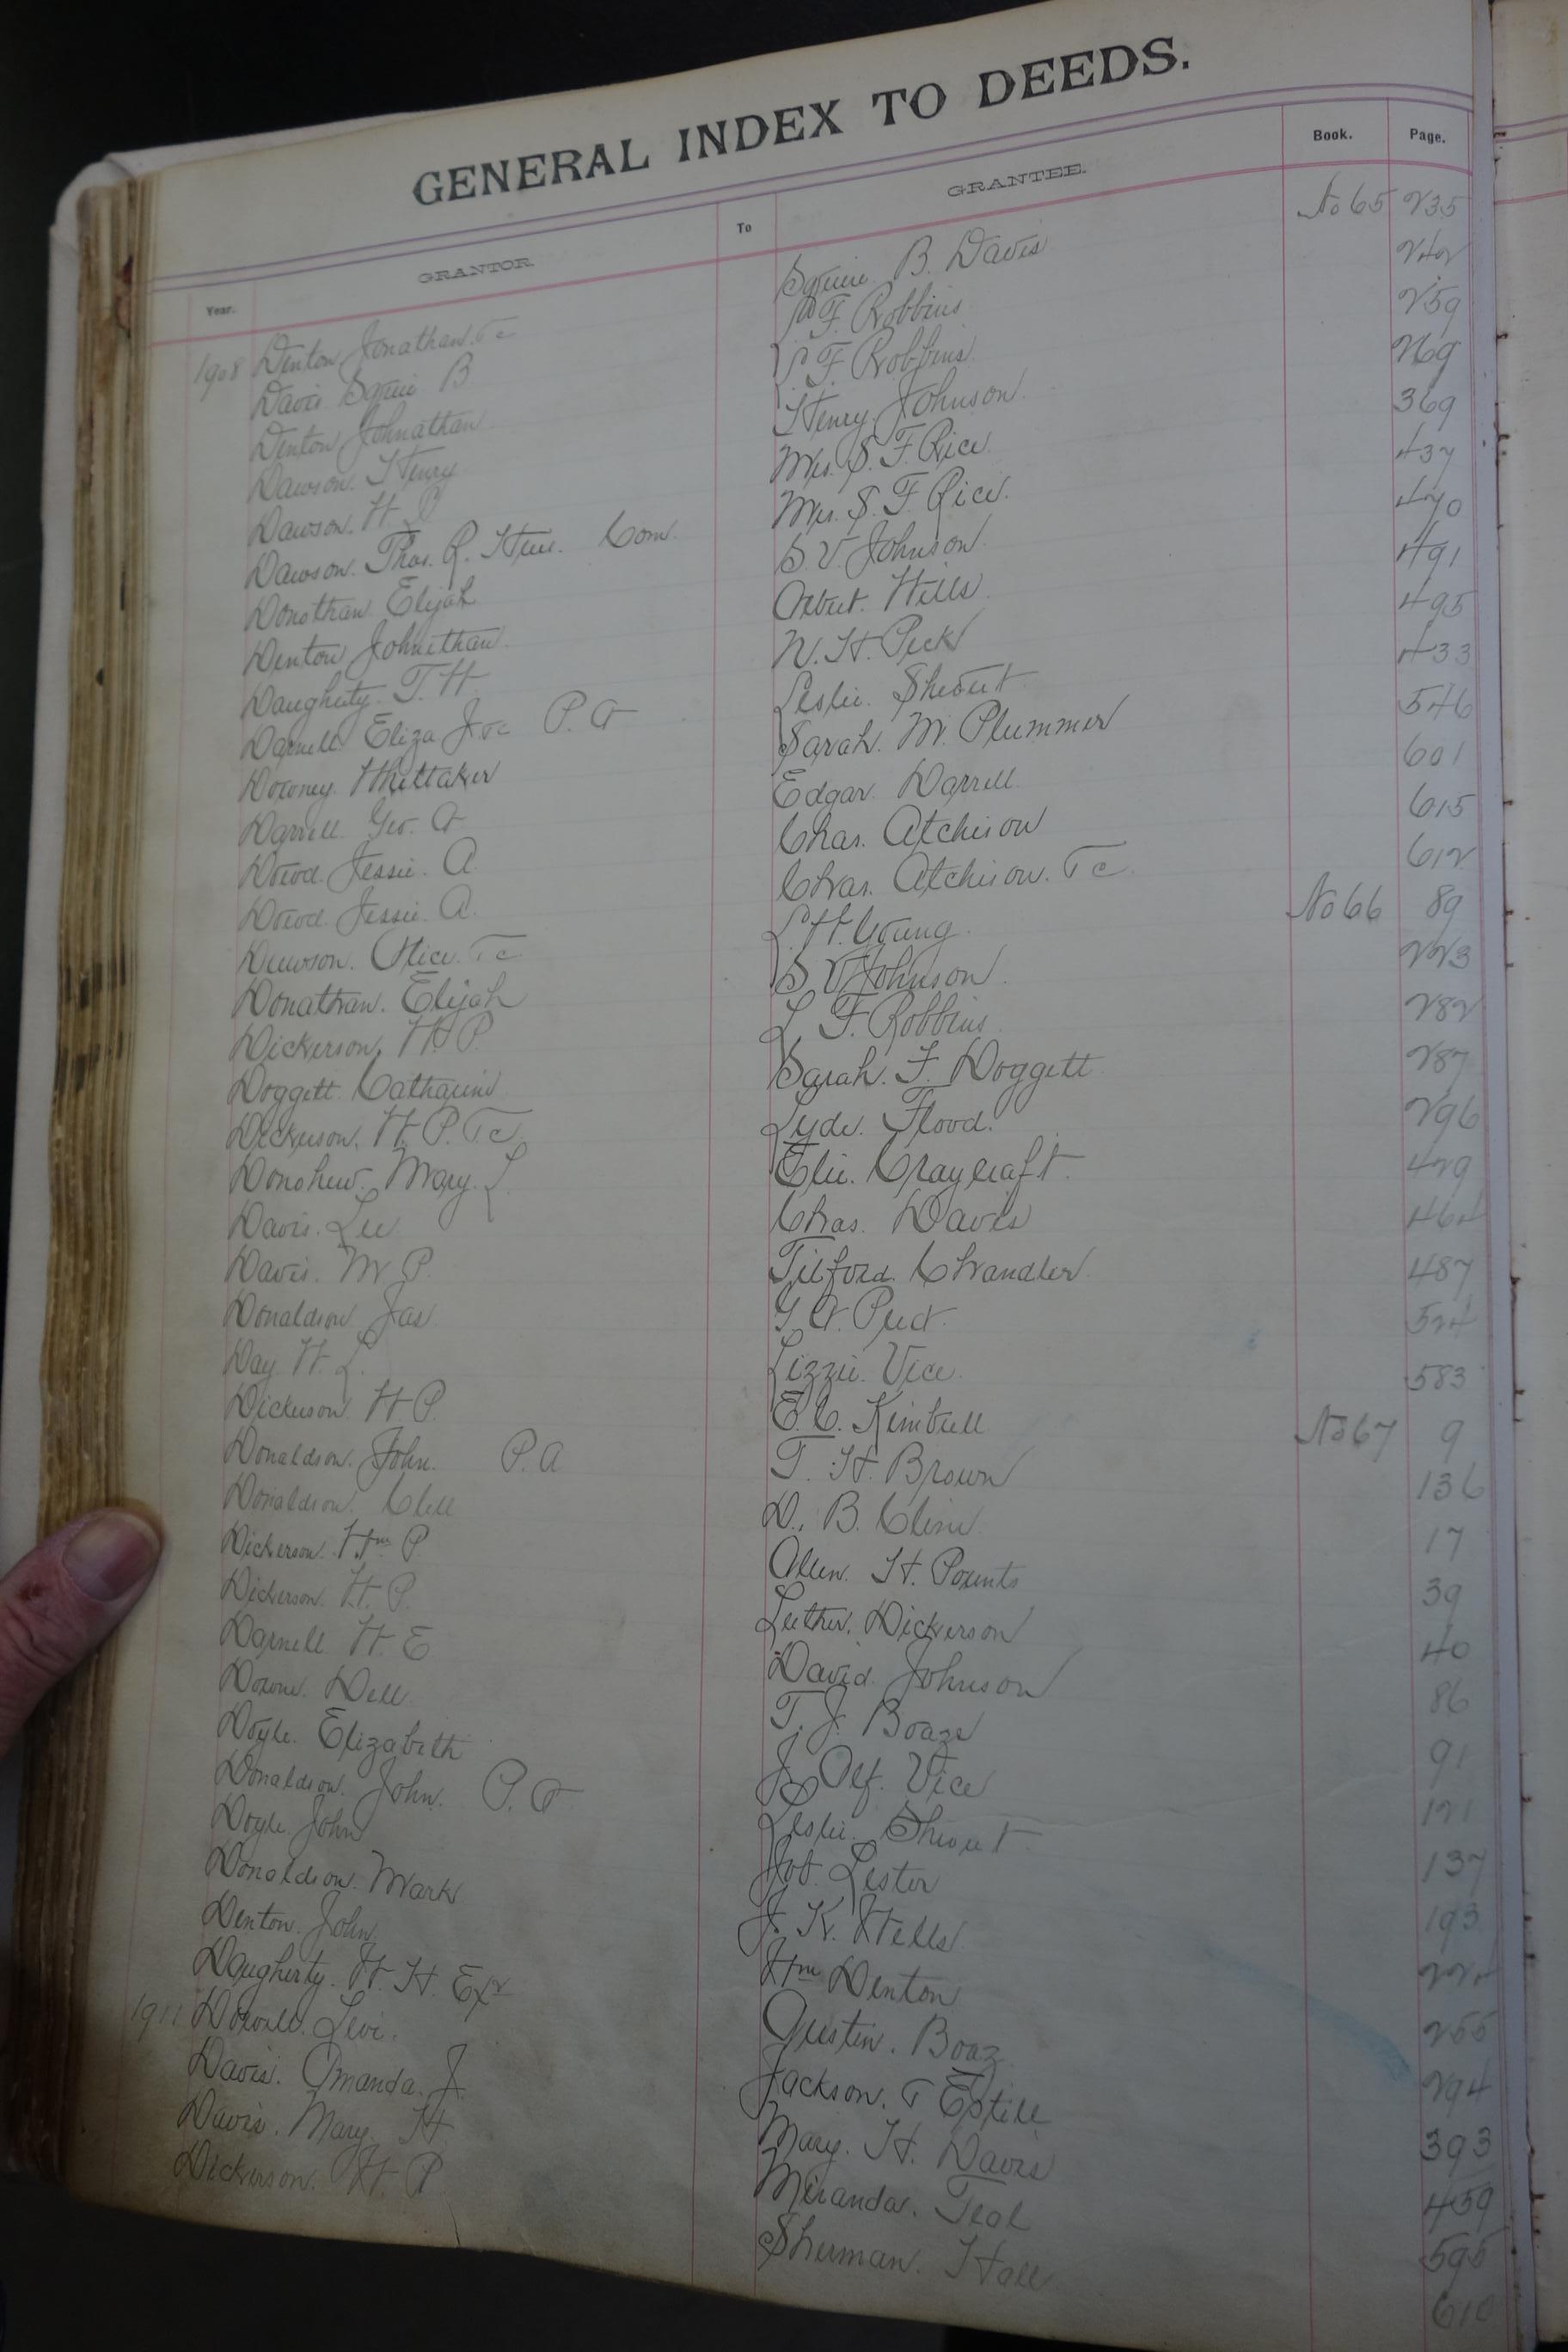 GENERAL INDEX TO DEEDS.
Year. GRANTOR To GRANTEE. Book. Page.
1908 Denton Jonathan. Tc Squire B. Davis No 65 235
Davis Squire B L F. Robbins 242
Denton Johnathan L F Robbins 259
Dawson. Henry Henry Johnson 269
Dawson. W P Mrs. S. F. Rice 369
Dawson. Thos. R. Heirs. Com. Mrs. S. F Rice. 437
Donathan Elijah S. V. Johnson 470
Denton Johnithan Albert. Wills 491
Daugherty. T. H N. H. Peck 495
Darnell Eliza J. Tc P. A Leslie. Shrout 433
Downey. Whittaker Sarah. M. Plummer 546
Darnell. Geo. A Edgar. Darnell 601
Dowd. Jessie. A. Chas. Atchison 615
Dowd. Jessie. A. Chas. Atchison. Tc 612
Dawson. Alice. Tc L. H. Young No 66 89
Donathan. Elijah S V Johnson 223
Dickerson. W. P. L F. Robbins 282
Doggett. Catharine Sarah. F. Doggett 287
Dickerson. W. P. Tc Lyde. Flood. 296
Donohew. Mary. L. Elie. Craycraft. 429
Davis. Lee Chas. Davis 464
Davis. M P. Tilford. Chandler 487
Donaldson Jas G A. Peed. 524
Day. W. L. Lizzie. Vice 583
Dickerson W P. E. C. Kimbrell No 67 9
Donaldson. John. P. A T. H. Brown 136
Donaldson. Clell D. B. Cline 17
Dickerson. Wm P. Allen. H. Pounts 39
Dickerson. W. P. Luther. Dickerson 40
Darnell W. E David. Johnson 86
Dell T. J. Boaze 91
Doyle. Elizabeth J. Alf. Vice 121
Donaldson. John. P. A Leslie. Shrout 137
Doyle. John Job. Lester 193
Donaldson. Mark J. K. Wells 222
Denton. John Wm Denton 255
Daugherty. W. H. Exr Austin. Boaz 294
1911 Duvall. Levi. Jackson. T Estill 393
Davis. Amanda. J. Mary. H. Davis 459
Davis. Mary H Miranda. Teal 595
Dickerson. W. P. Sherman. Hall 610